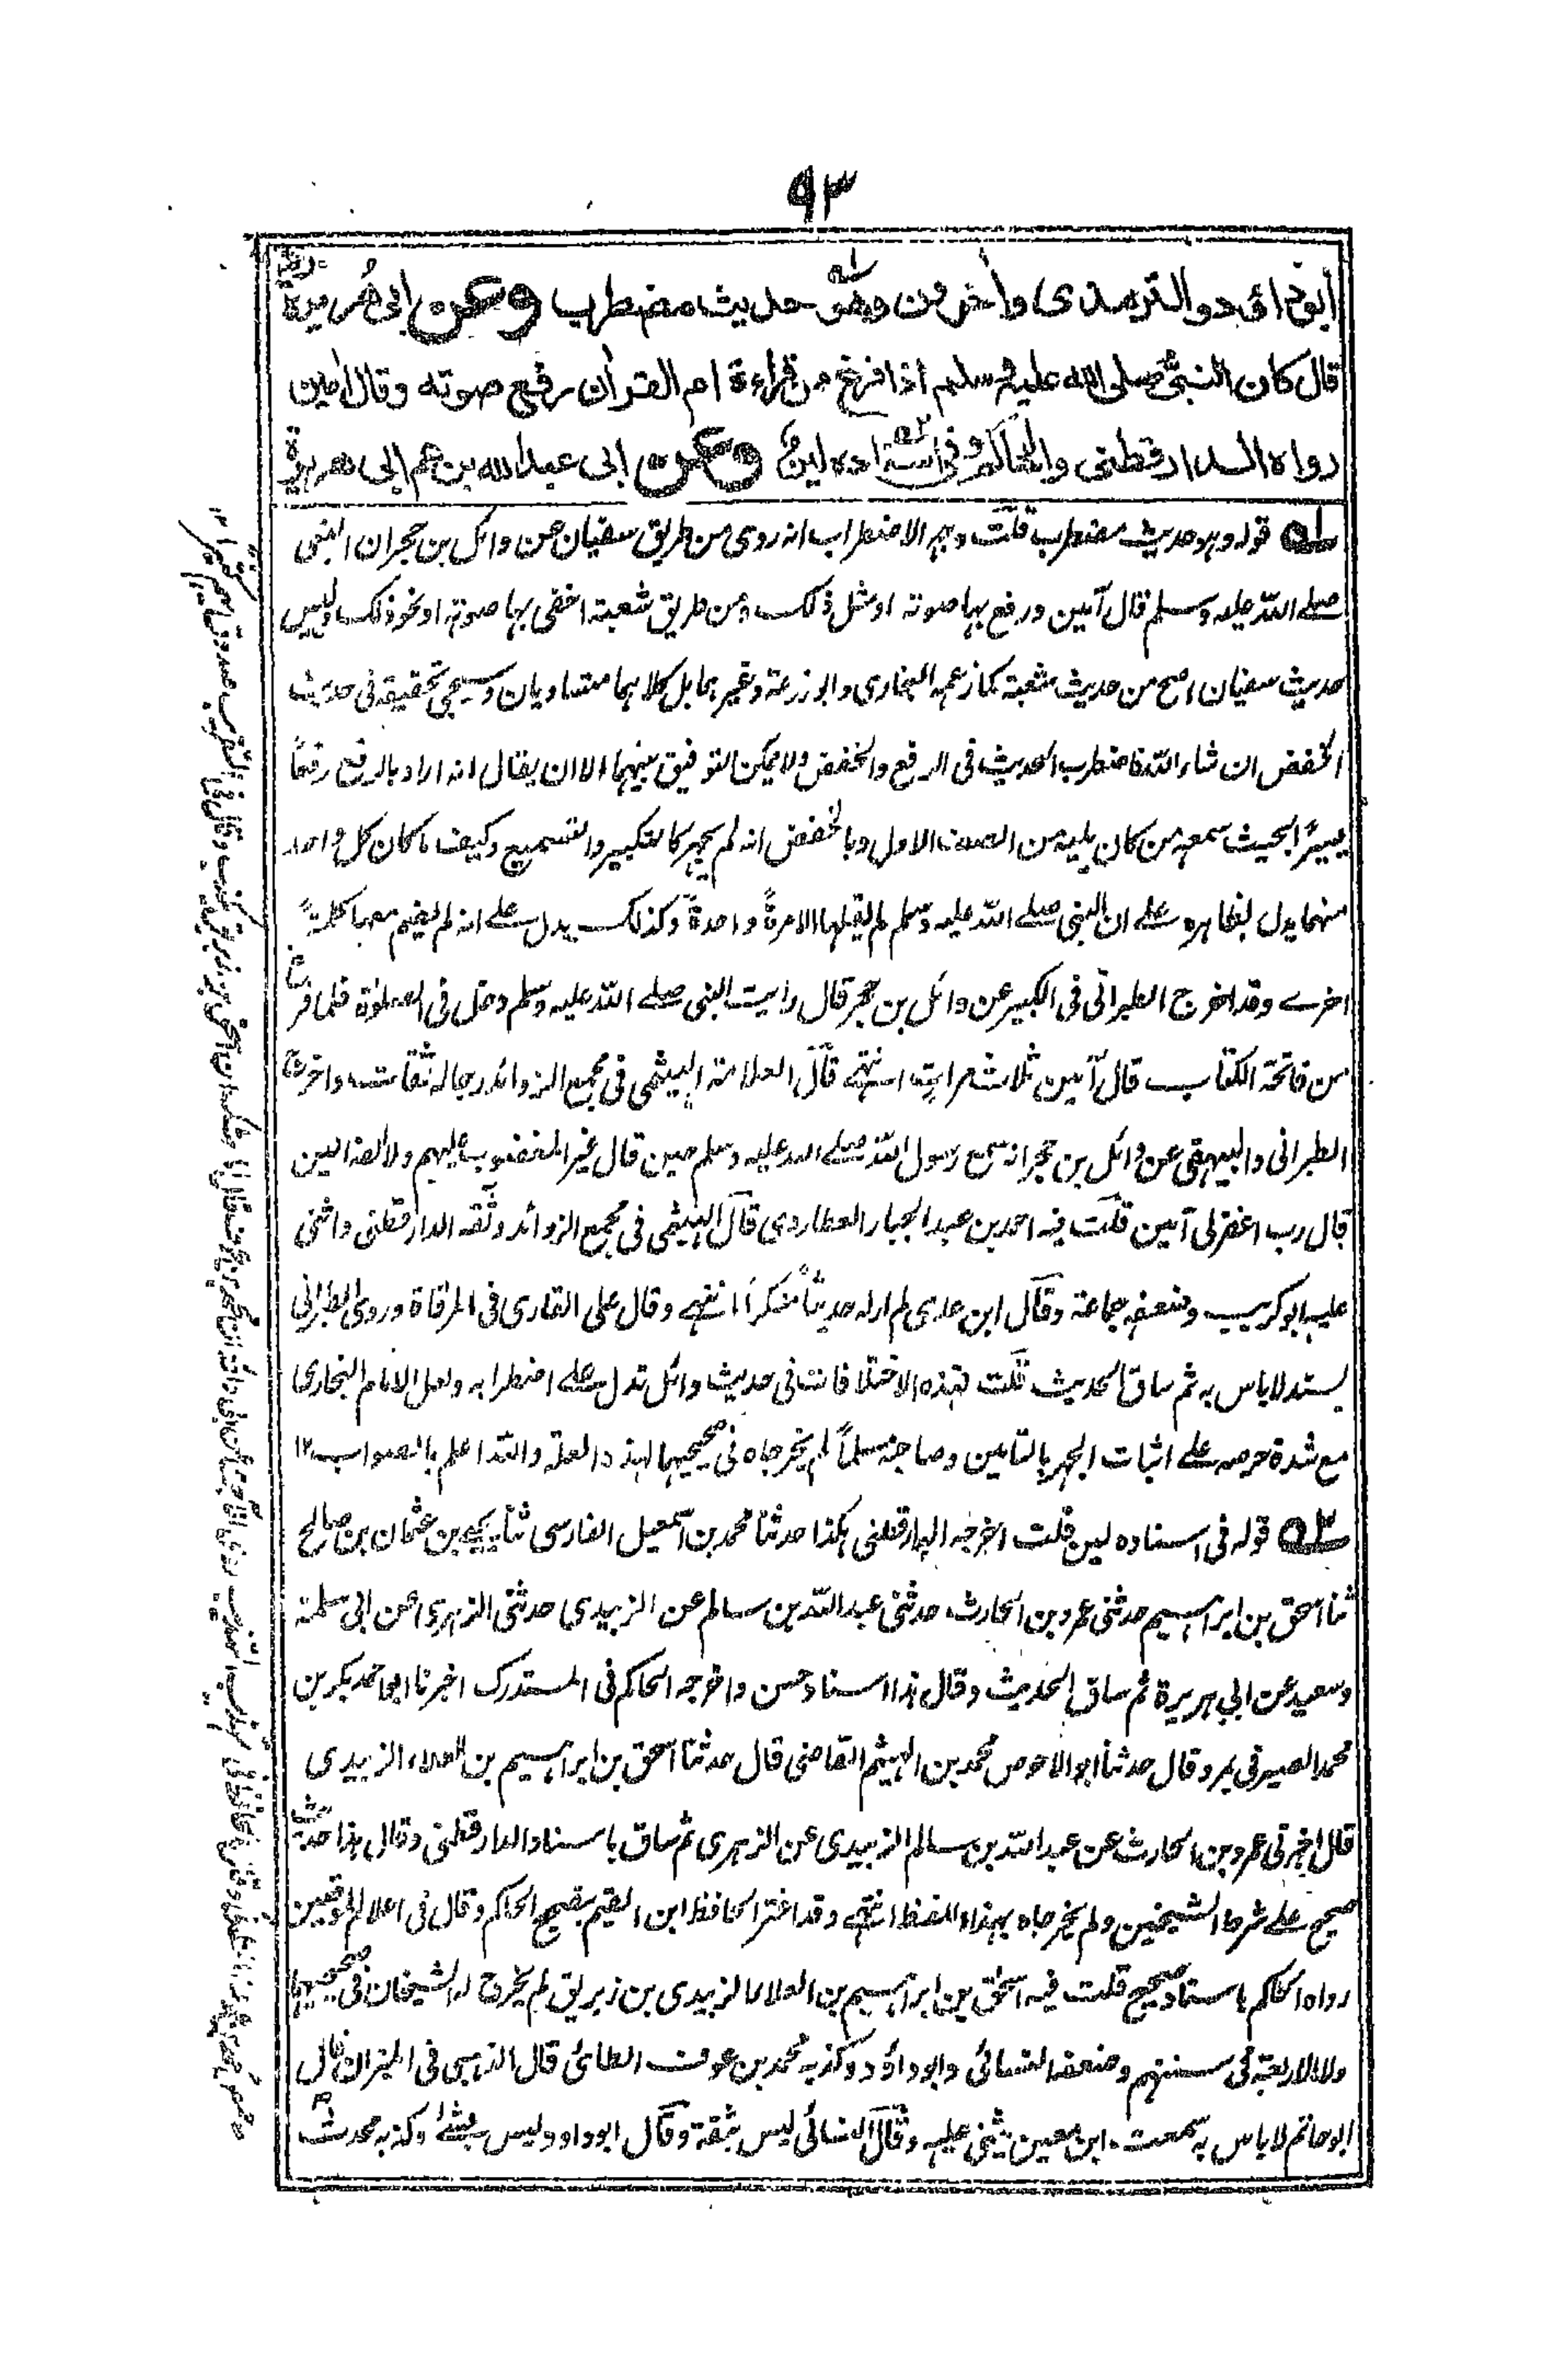 ٩٣
أبو داؤد والترمذى وأخرون وهو حديث مضطرب وعن ابى هريرة رض
قال كان النبى صلى الله عليه وسلم اذا فرغ من قراءة ام القرأن رفع صوته وقال أمين
رواه الدارقطنى والحاكم وفى اسناده لين وعن ابى عبد الله بن عم ابى هريرة
١ه قوله وهو حديث مضطرب قلت وجه الاضطراب انه روى من طريق سفيان عن وائل بن حجران النبى
صلے اللہ علیہ وسلم قال آمين ورفع بها صوته او مثل ذلك ومن طريق شعبة اخفى بها صوته او نحو ذلك وليس
حديث سفيان اصح من حديث شعبة كما زعمه البخارى وابو زرعة وغيرهما بل كلاهما متساويان وسيجئ تحقيقه فى حديث
الخفض ان شاء اللہ فاضطرب الحديث فى الرفع والخفض ولا يمكن التوفيق بينهما الا ان يقال انه اراد بالرفع رفعاً
يسيرًا بحيث سمعه من كان يليه من الصف الاول وبالخفض انه لم يجهر كالتكبير والتسميع وكيف ما كان كل واحد
منهما يدل بظاهره علے ان النبى صلے اللہ علیہ وسلم لم يقلها الا مرةً واحدةً وكذلك يدل علے انه لم يضم معها كلمةً
اخرے وقد اخرج الطبرانى فى الكبير عن وائل بن حجر قال رايت النبى صلے اللہ علیہ وسلم دخل فى الصلوٰة فلما فرغ
من فاتحة الكتاب قال آمين ثلاث مرات انتہے قال العلامة الہيثمى فى مجمع الزوائد رجاله ثقات واخرج
الطبرانى والبيهقى عن وائل بن حجر انه سمع رسول اللہ صلے اللہ علیہ وسلم حين قال غير المغضوب عليهم ولا الضالين
قال رب اغفرلى آمين قلت فيه احمد بن عبد الجبار العطاردى قال الہيثمى فى مجمع الزوائد وثقه الدارقطنى واثنى
عليه ابو كريب وضعفه جماعة وقال ابن عدى لم ار له حديثاً منكراً انتہے وقال على القارى فى المرقاة وروى الطبرانى
بسند لا باس به ثم ساق الحديث قلت فهذه الاختلافات فى حديث وائل تدل علے اضطرابه ولعل الامام البخارى
مع شدة حرصه علے اثبات الجهر بالتامين وصاحبه مسلماً لم يخرجاه فى صحيحيهما لهذه العلة واللہ اعلم بالصواب ١٢
٢ه قوله فى اسناده لين قلت اخرجه الدارقطنى هكذا حدثنا محمد بن اسمعيل الفارسى ثنا يحيے بن عثمان بن صالح
ثنا اسحق بن ابراہيم حدثنى عمرو بن الحارث حدثنى عبد اللہ بن سالم عن الزبيدى حدثنى الزہرى عن ابى سلمة
وسعيد عن ابى ہريرة ثم ساق الحديث وقال ہذا اسناد حسن واخرجه الحاكم فى المستدرك اخبرنا ابو احمد بكر بن
محمد الصيرفى بمرو قال حدثنا ابو الاحوص محمد بن الہيثم القاضى قال حدثنا اسحق بن ابراہيم بن العلاء الزبيدى
قال اخبرنى عمرو بن الحارث عن عبد اللہ بن سالم الزبيدى عن الزہرى ثم ساق باسناد الدارقطنى وقال ہذا حديث
صحيح علے شرط الشيخين ولم يخرجاه بہذا اللفظ انتہے وقد اغتر الحافظ ابن القيم بتصحيح الحاكم وقال فى اعلام الموقعين
رواه الحاكم باسناد صحيح قلت فيه اسحٰق بن ابراہيم بن العلاء الزبيدى بن زبريق لم يخرج له الشيخان فى صحيحيهما
ولا الاربعة فى سننہم وضعفه النسائى وابو داؤد وكذبه محمد بن عوف الطائى قال الذہبى فى الميزان قال
ابو حاتم لا باس به سمعت ابن معين يثنى عليه وقال النسائى ليس بثقة وقال ابو داود ليس بشئ وكذبه محدث